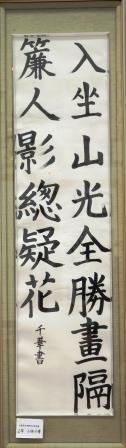 入坐山光全勝畫隔
簾人影總疑花
千華書